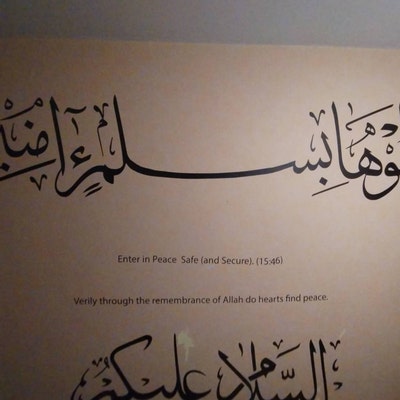 بِسَلَٰمٍ ءَامِنِينَ
Enter in Peace Safe (and Secure). (15:46)
Verily through the remembrance of Allah do hearts find peace.
السَّلَامُ عَلَيْكُم